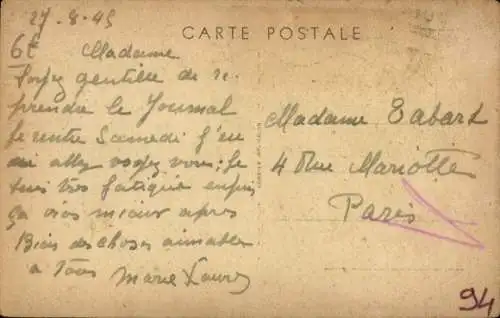 27-8-45
CARTE POSTALE
Madame
Soyez gentille de re
prendre le Journal
Je rentre Samedi j'en
ai assez voyez vous; Je
suis très fatiguée enfin
ça ira mieux après
Bien des choses aimables
à Tous Marie
Madame Tabard
4 Rue Mariotte
Paris
94